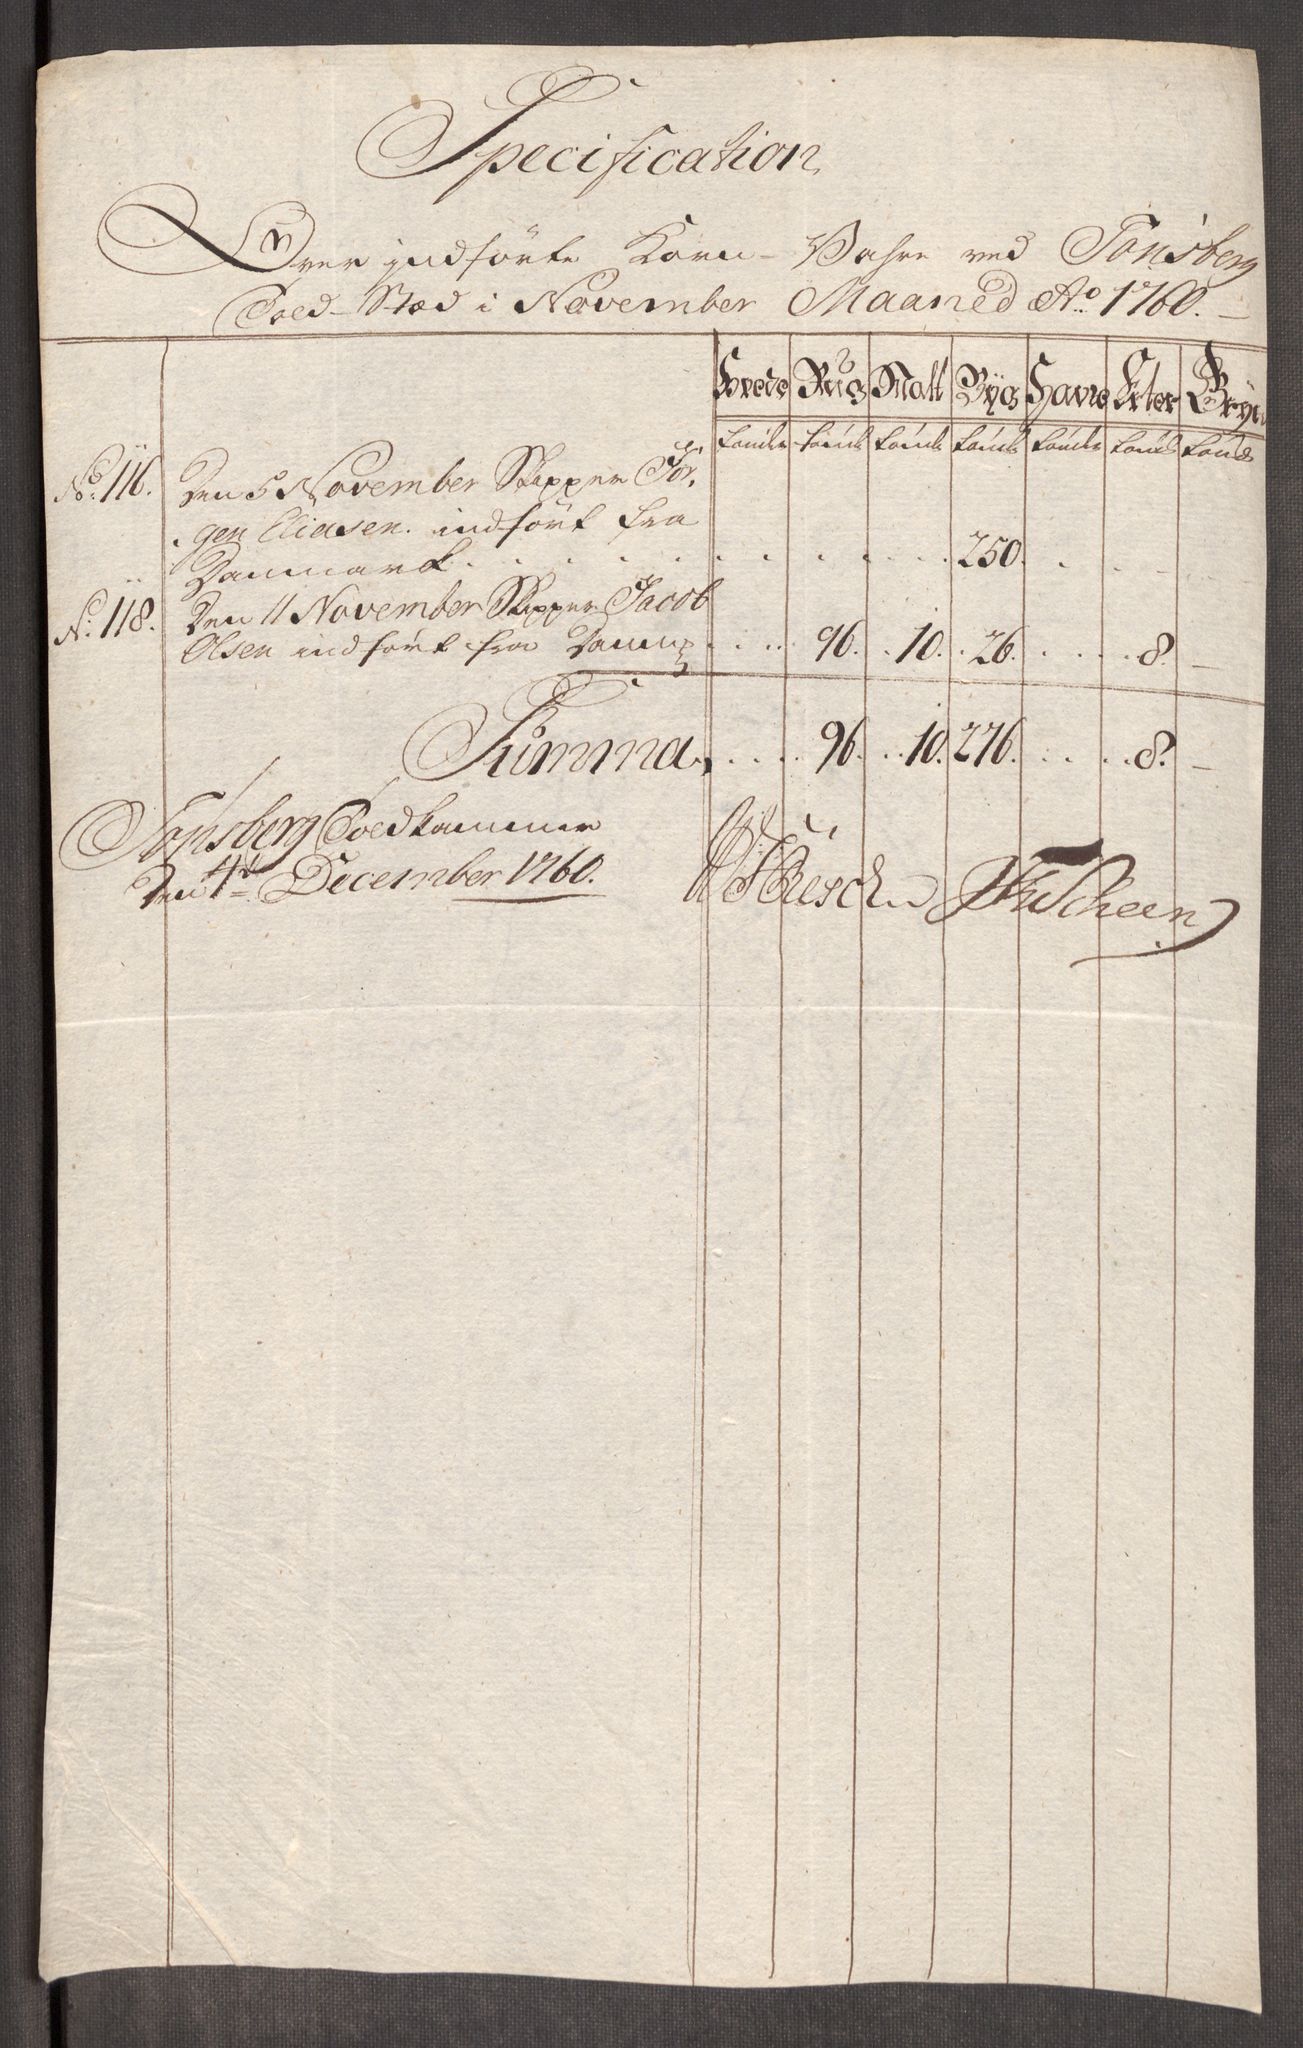 Specification
Over jndförte Korn-Vahre ved Tönsberg
Toed-Stæd i November Maaned Ao 1760.
Hvede Rug Malt Byg Havre Erter Gryn
tönder tönder tönder tönder tönder tönd tönd
No. 116. Den 5 November Skipper Jör,
gen Eliasen. indfört fra
Danmark . . . 250.
No. 118. Den 11 November Skipper Jacob
Olsen indfört fra Danm . . . 96. 10. 26. . . 8. –
Summa . . . 96. 10. 276. . . 8. –
Tönsberg Toedkammer
den 4de December 1760.
Scheen